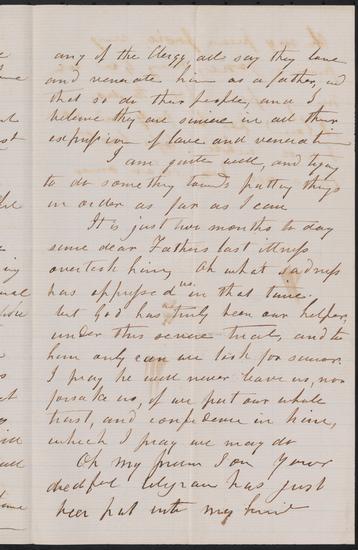 any of the Clergy, all say they love
and venerate him as a father, and
that so do their people, and I
believe they are sincere in all their
expression of love and veneration
I am quite well, and trying
to do something towards putting things
in order as far as I can
It is just two months to day
since dear Fathers last illness
overtook him, Oh what sadness
has oppressed us in that time.
but God has truly been our helper,
under this severe trial, and to
him only can we look for succor.
I pray he will never leave us, nor
forsake us, if we put our whole
trust, and confidence in him,
which I pray we may do
Oh my Son Your
dredful telegram has just
been put into my hand